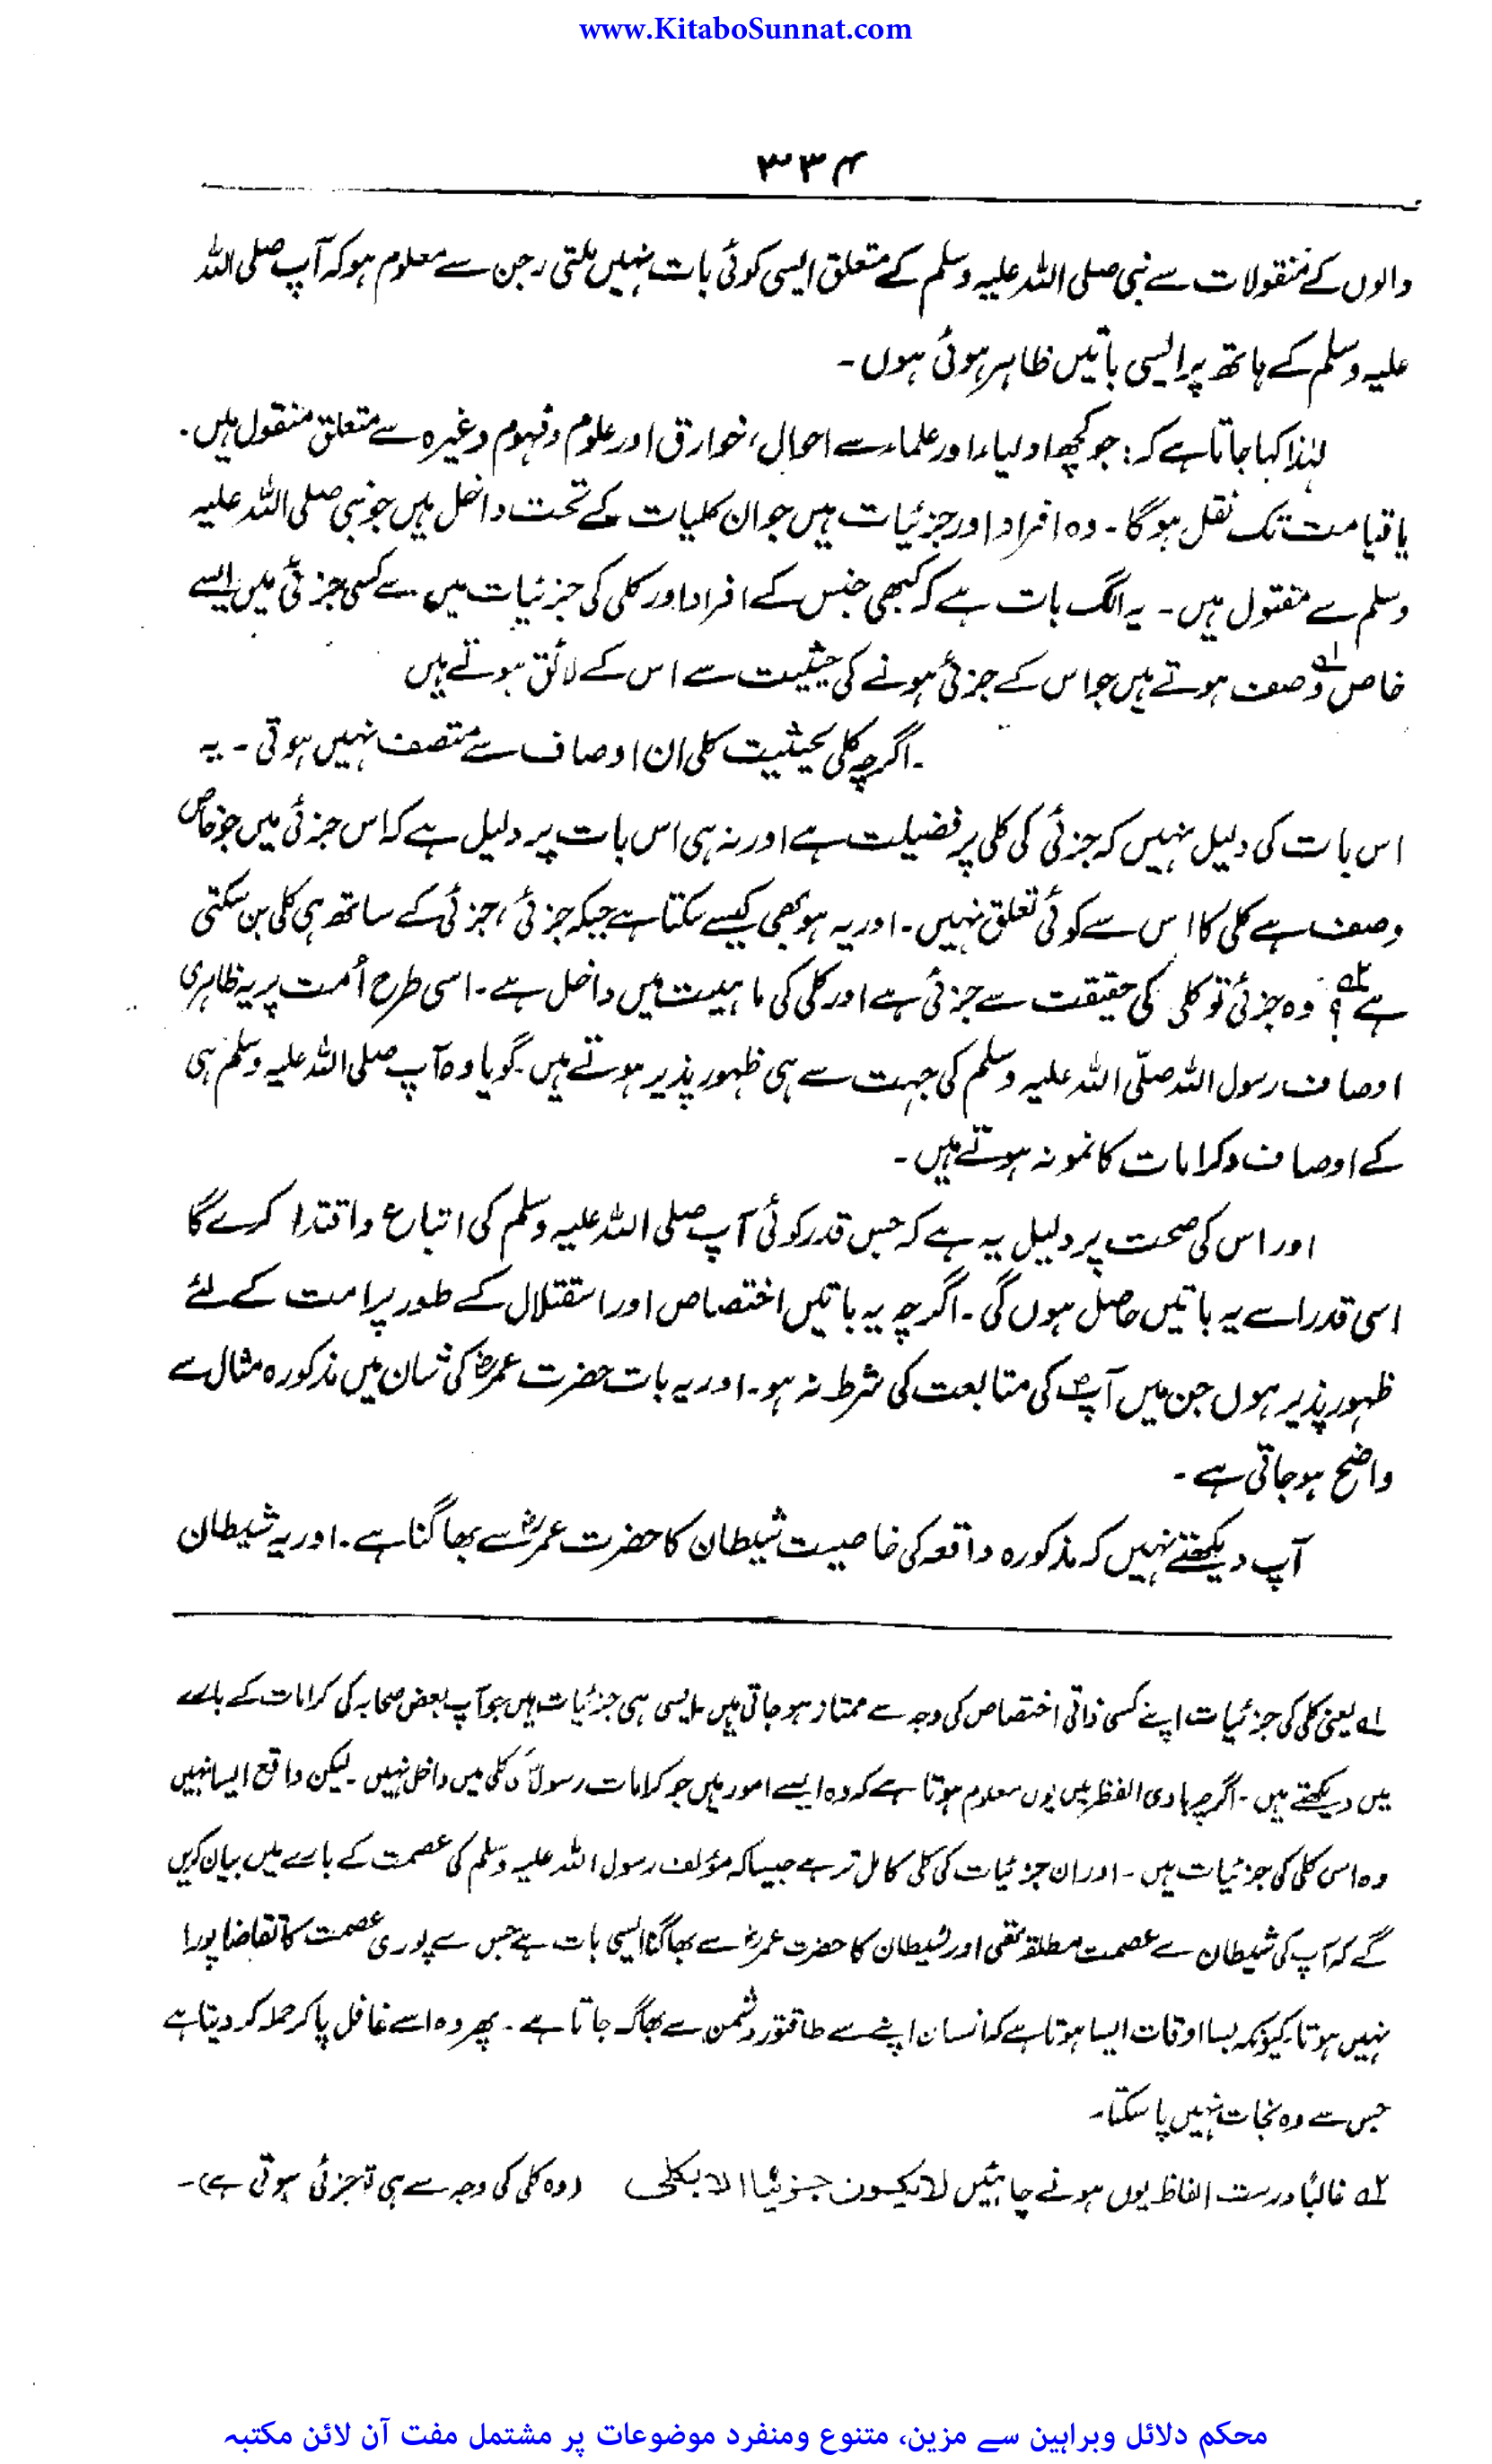 www.KitaboSunnat.com
۳۳۴
والوں کے منقولات سے نبی صلی اللہ علیہ وسلم کے متعلق ایسی کوئی بات نہیں ملتی، جن سے معلوم ہو کہ آپ صلی اللہ
علیہ وسلم کے ہاتھ پر ایسی باتیں ظاہر ہوئی ہوں۔
لہٰذا کہا جاتا ہے کہ: جو کچھ اولیاء اور علماء سے احوال، خوارق اور علوم و فہوم وغیرہ سے متعلق منقول ہیں۔
یا قیامت تک نقل ہو گا۔ وہ افراد اور جزئیات ہیں جو ان کلیات کے تحت داخل ہیں جو نبی صلی اللہ علیہ
وسلم سے منقول ہیں۔ یہ الگ بات ہے کہ کبھی جنس کے افراد اور کلی کی جزئیات میں سے کسی جزئی میں ایسے
خاص وصف ہوتے ہیں جو اس کے جزئی ہونے کی حیثیت سے اس کے لائق ہوتے ہیں
۔اگرچہ کلی بحیثیت کلی ان اوصاف سے متصف نہیں ہوتی۔ یہ
اس بات کی دلیل نہیں کہ جزئی کی کلی پر فضیلت ہے اور نہ ہی اس بات پر دلیل ہے کہ اس جزئی میں جو خاص
وصف ہے کلی کا اس سے کوئی تعلق نہیں۔ اور یہ ہو بھی کیسے سکتا ہے جبکہ جزئی، جزئی کے ساتھ ہی کلی بن سکتی
ہے؟ ۲ وہ جزئی تو کلی کی حقیقت سے جزئی ہے اور کلی کی ماہیت میں داخل ہے۔ اسی طرح اُمت پر یہ ظاہری
اوصاف رسول اللہ صلّی اللہ علیہ وسلم کی جہت سے ہی ظہور پذیر ہوتے ہیں۔ گویا وہ آپ صلی اللہ علیہ وسلم ہی
کے اوصاف و کرامات کا نمونہ ہوتے ہیں۔
اور اس کی صحت پر دلیل یہ ہے کہ جس قدر کوئی آپ صلی اللہ علیہ وسلم کی اتباع و اقتدا کرے گا
اسی قدر اسے یہ باتیں حاصل ہوں گی۔ اگرچہ یہ باتیں اختصاص اور استقلال کے طور پر امت کے لئے
ظہور پذیر ہوں جن میں آپؐ کی متابعت کی شرط نہ ہو۔ اور یہ بات حضرت عمرؓ کی شان میں مذکورہ مثال سے
واضح ہو جاتی ہے۔
آپ دیکھتے نہیں کہ مذکورہ واقعہ کی خاصیت شیطان کا حضرت عمرؓ سے بھاگنا ہے۔ اور یہ شیطان
۱ یعنی کلی کی جزئیات اپنے کسی ذاتی اختصاص کی وجہ سے ممتاز ہو جاتی ہیں۔ ایسی ہی جزئیات ہیں جو آپ بعض صحابہ کی کرامات کے بارے
میں دیکھتے ہیں۔ اگرچہ بادی النظر میں یوں معلوم ہوتا ہے کہ وہ ایسے امور ہیں جو کرامات رسولؐ کی کلی میں داخل نہیں۔ لیکن واقع ایسا نہیں
وہ اس کلی کی جزئیات ہیں۔ اور ان جزئیات کی کلی کامل تر ہے جیسا کہ مؤلف رسول اللہ علیہ وسلم کی عصمت کے بارے میں بیان کریں
گے کہ آپ کی شیطان سے عصمت مطلقہ تھی اور شیطان کا حضرت عمرؓ سے بھاگنا ایسی بات ہے جس سے پوری عصمت کا تقاضا پورا
نہیں ہوتا۔ کیونکہ بسا اوقات ایسا ہوتا ہے کہ انسان اپنے سے طاقتور دشمن سے بھاگ جاتا ہے۔ پھر وہ اسے غافل پا کر حملہ کر دیتا ہے
جس سے وہ نجات نہیں پا سکتا۔
۲ غالبًا درست الفاظ یوں ہونے چاہئیں لا یکون جزئیا الا بکلی (وہ کلی کی وجہ سے ہی تو جزئی ہوتی ہے)۔
محکم دلائل وبراہین سے مزین، متنوع ومنفرد موضوعات پر مشتمل مفت آن لائن مکتبہ